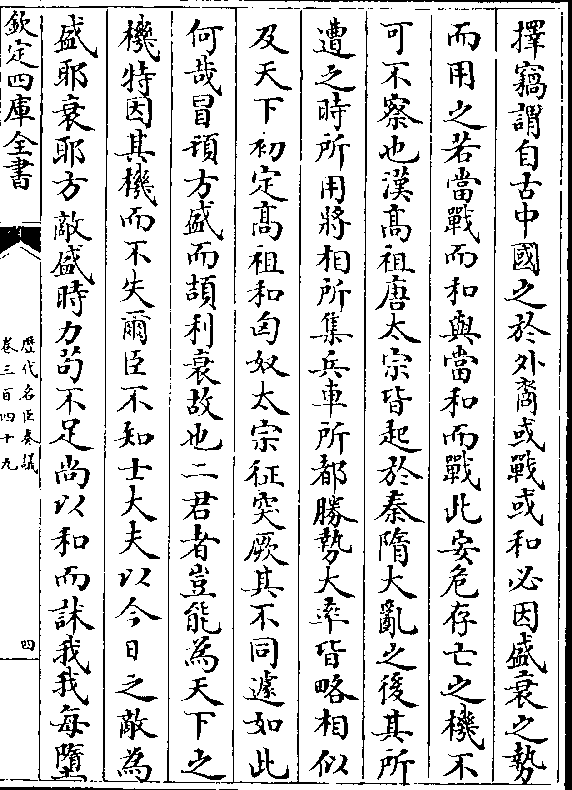 擇竊謂自古中國之於外裔或戰或和必因盛衰之勢
而用之若當戰而和與當和而戰此安危存亡之機不
可不察也漢高祖唐太宗皆起於秦隋大亂之後其所
遭之時所用將相所集兵車所都勝勢大率皆略相似
及天下初定高祖和匈奴太宗征突厥其不同遽如此
何哉冒頓方盛而頡利衰故也二君者豈能為天下之
機特因其機而不失爾臣不知士大夫以今日之敵為
盛耶衰耶方敵盛時力苟不足尚以和而訹我我每墮
欽定四庫全書
歷代名臣奏議
卷三百四十九
四